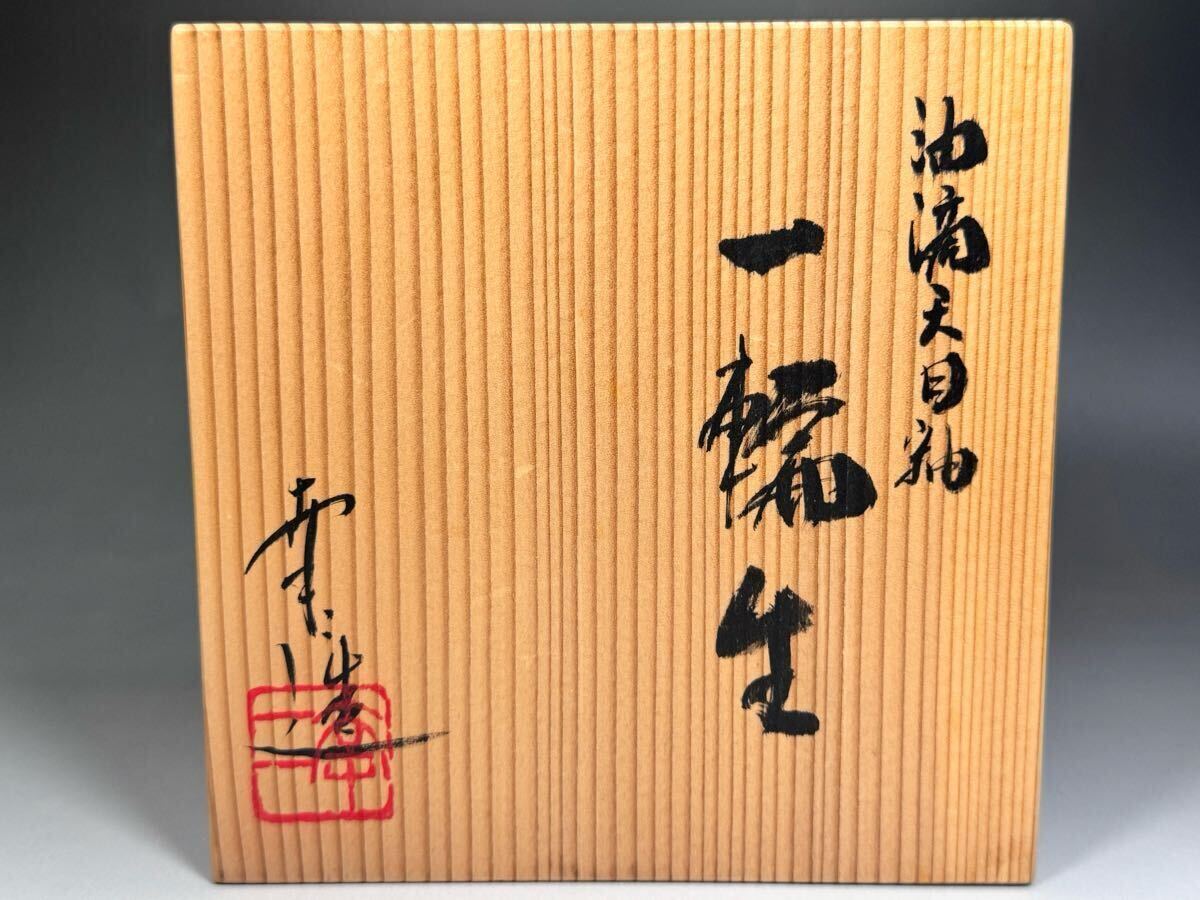 油滴天目釉
一輪生
幸造